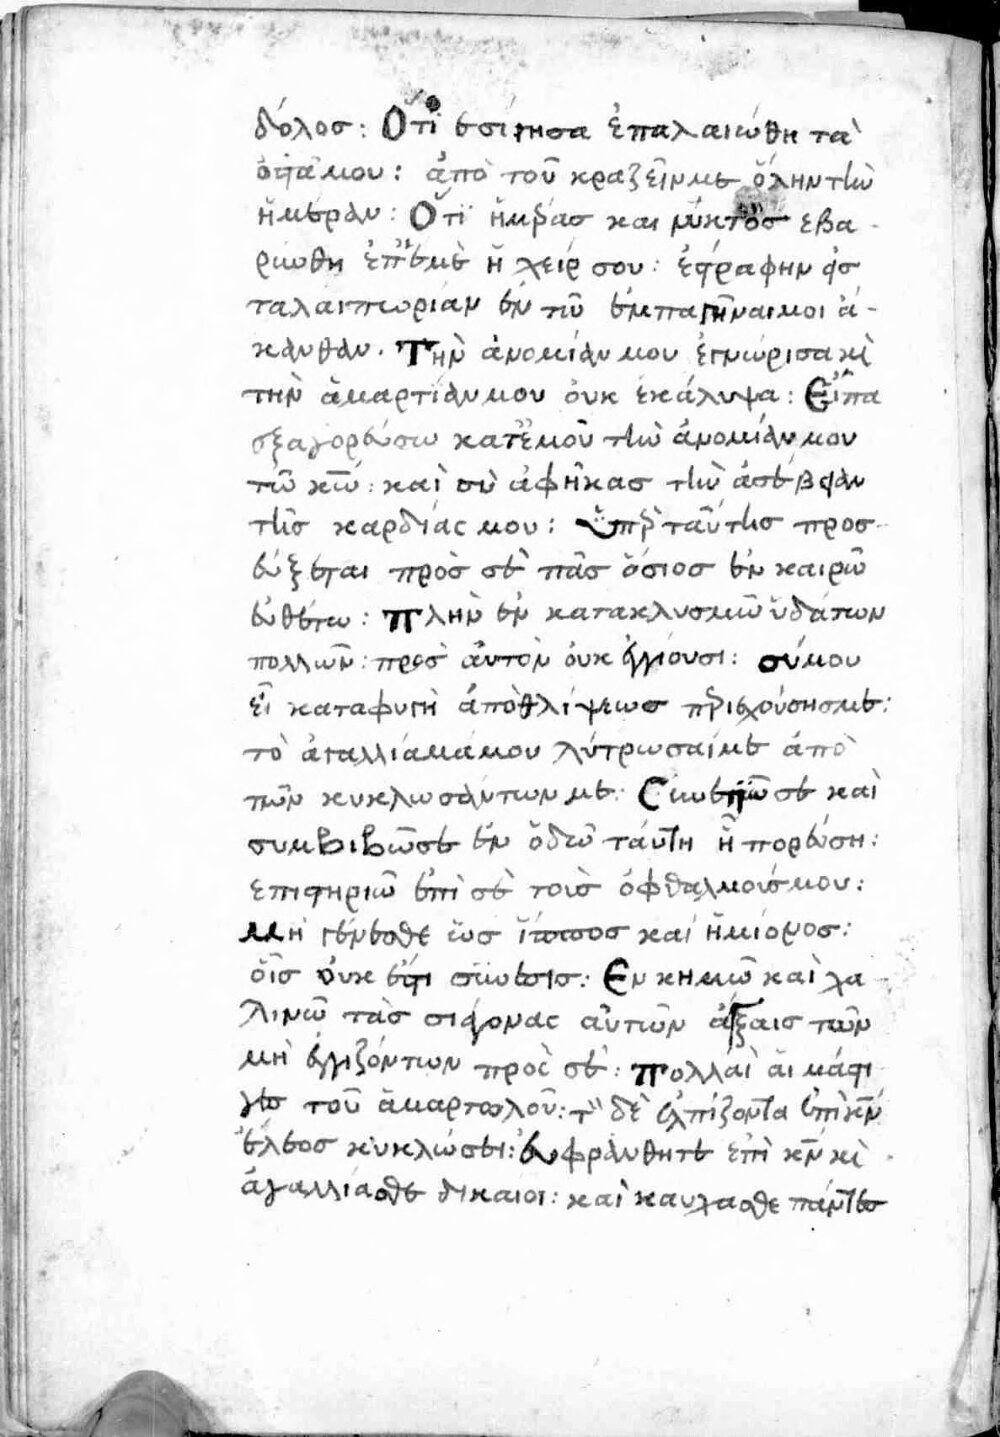 δόλος: Ὅτι ἐσίγησα ἐπαλαιώθη τὰ
ὀστᾶ μου: ἀπὸ τοῦ κράζειν με ὅλην τὴν
ἡμέραν: Ὅτι ἡμέρας και νυκτὸς εβα-
ρύνθη ἐπ' ἐμὲ ἡ χείρ σου: ἐστράφην εἰς
ταλαιπωρίαν ἐν τῶ ἐμπαγῆναι μοι ἄ-
κανθαν. Τὴν ἀνομίαν μου ἐγνώρισα κὶ
τὴν ἁμαρτίαν μου οὐκ ἐκάλυψα: Εἶπα
ἐξαγορεύσω κατ' ἐμοῦ τὴν ἀνομίαν μου
τῶ κω: καὶ σὺ ἀφῆκας τὴν ἀσέβειαν
τῆς καρδίας μου: Ὑπὲρ ταύτης προσ-
εύξεται πρὸς σὲ πᾶς ὅσιος ἐν καιρῶ
εὐθέτω: Πλὴν ἐν κατακλυσμῶ ὑδάτων
πολλῶν: προς αὐτὸν οὐκ ἐγγιοῦσι: σύ μου
εἶ καταφυγὴ ἀπὸ θλίψεως περιεχούσης με:
τὸ ἀγαλλίαμά μου λύτρωσαί με ἀπὸ
τῶν κυκλωσάντων με: Συνετιῶ σε καὶ
συμβιβῶ σε ἐν ὁδῶ ταύτη ἧ πορεύση:
ἐπιστηριῶ ἐπὶ σὲ τοὺς ὀφθαλμούς μου:
Μὴ γένεσθε ὡς ἵππος καὶ ἡμίονος:
οἷς οὐκ ἔστι σύνεσις: Ἐν κημῶ καὶ χα-
λινῶ τὰς σιαγόνας αὐτῶν ἄγξαις τῶν
μὴ ἐγγιζόντων πρὸς σέ: Πολλαὶ αἱ μάστι-
γες τοῦ ἁμαρτωλοῦ: τ̀ δὲ ἐλπίζοντα ἐπὶ κν
ἔλεος κυκλώσει: Εὐφράνθητε ἐπὶ κν κὶ
ἀγαλλιᾶσθε δίκαιοι: καὶ καυχᾶσθε πάντες